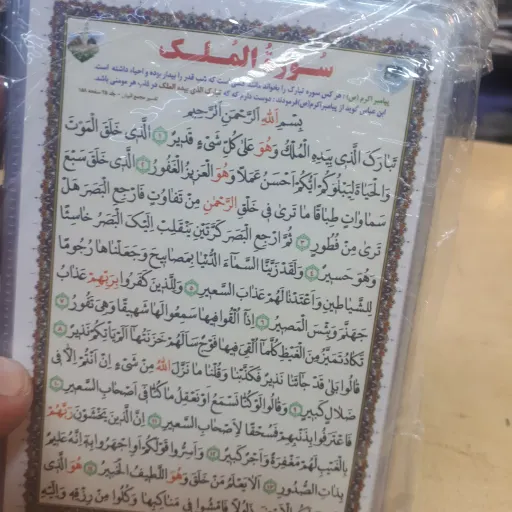 سُورَةُ المُلـك
پیامبر اکرم (ص): هر کس سوره تبارک را بخواند مانند کسی است که شب قدر را بیدار بوده و احیاء داشته است.
ابن عباس گوید از پیامبر اکرم (ص) فرمودند: دوست دارم که که تبارک الذی بیده الملک در قلب هر مومنی باشد.
بِسْمِ اللهِ الرَّحْمٰنِ الرَّحیمِ
تَبارَکَ الَّذی بِیَدِهِ الْمُلْکُ وَهُوَ عَلیٰ کُلِّ شَیْءٍ قَدیرٌ ﴿۱﴾ الَّذی خَلَقَ الْمَوْتَ
وَالْحَیاةَ لِیَبْلُوَکُمْ اَیُّکُمْ اَحْسَنُ عَمَلًا وَهُوَ الْعَزیزُ الْغَفُورُ ﴿۲﴾ الَّذی خَلَقَ سَبْعَ
سَماواتٍ طِباقًا ما تَریٰ فی خَلْقِ الرَّحْمٰنِ مِنْ تَفاوُتٍ فَارْجِعِ الْبَصَرَ هَلْ
تَریٰ مِنْ فُطُورٍ ﴿۳﴾ ثُمَّ ارْجِعِ الْبَصَرَ کَرَّتَیْنِ یَنْقَلِبْ اِلَیْکَ الْبَصَرُ خاسِئًا
وَهُوَ حَسیرٌ ﴿۴﴾ وَلَقَدْ زَیَّنَّا السَّماءَ الدُّنْیا بِمَصابیحَ وَجَعَلْناها رُجُومًا
لِلشَّیاطینِ وَاَعْتَدْنا لَهُمْ عَذابَ السَّعیرِ ﴿۵﴾ وَلِلَّذینَ کَفَرُوا بِرَبِّهِمْ عَذابُ
جَهَنَّمَ وَبِئْسَ الْمَصیرُ ﴿۶﴾ اِذا اُلْقُوا فیها سَمِعُوا لَها شَهیقًا وَهِیَ تَفُورُ ﴿۷﴾
تَکادُ تَمَیَّزُ مِنَ الْغَیْظِ کُلَّما اُلْقِیَ فیها فَوْجٌ سَاَلَهُمْ خَزَنَتُها اَلَمْ یَأْتِکُمْ نَذیرٌ ﴿۸﴾
قالُوا بَلیٰ قَدْ جاءَنا نَذیرٌ فَکَذَّبْنا وَقُلْنا ما نَزَّلَ اللهُ مِنْ شَیْءٍ اِنْ اَنْتُمْ اِلّا فی
ضَلالٍ کَبیرٍ ﴿۹﴾ وَقالُوا لَوْ کُنّا نَسْمَعُ اَوْ نَعْقِلُ ما کُنّا فی اَصْحابِ السَّعیرِ ﴿۱۰﴾
فَاعْتَرَفُوا بِذَنْبِهِمْ فَسُحْقًا لِاَصْحابِ السَّعیرِ ﴿۱۱﴾ اِنَّ الَّذینَ یَخْشَوْنَ رَبَّهُمْ
بِالْغَیْبِ لَهُمْ مَغْفِرَةٌ وَاَجْرٌ کَبیرٌ ﴿۱۲﴾ وَاَسِرُّوا قَوْلَکُمْ اَوِ اجْهَرُوا بِهِ اِنَّهُ عَلیمٌ
بِذاتِ الصُّدُورِ ﴿۱۳﴾ اَلا یَعْلَمُ مَنْ خَلَقَ وَهُوَ اللَّطیفُ الْخَبیرُ ﴿۱۴﴾ هُوَ الَّذی
ذَلُولًا فَامْشُوا فی مَناکِبِها وَکُلُوا مِنْ رِزْقِهِ وَاِلَیْهِ